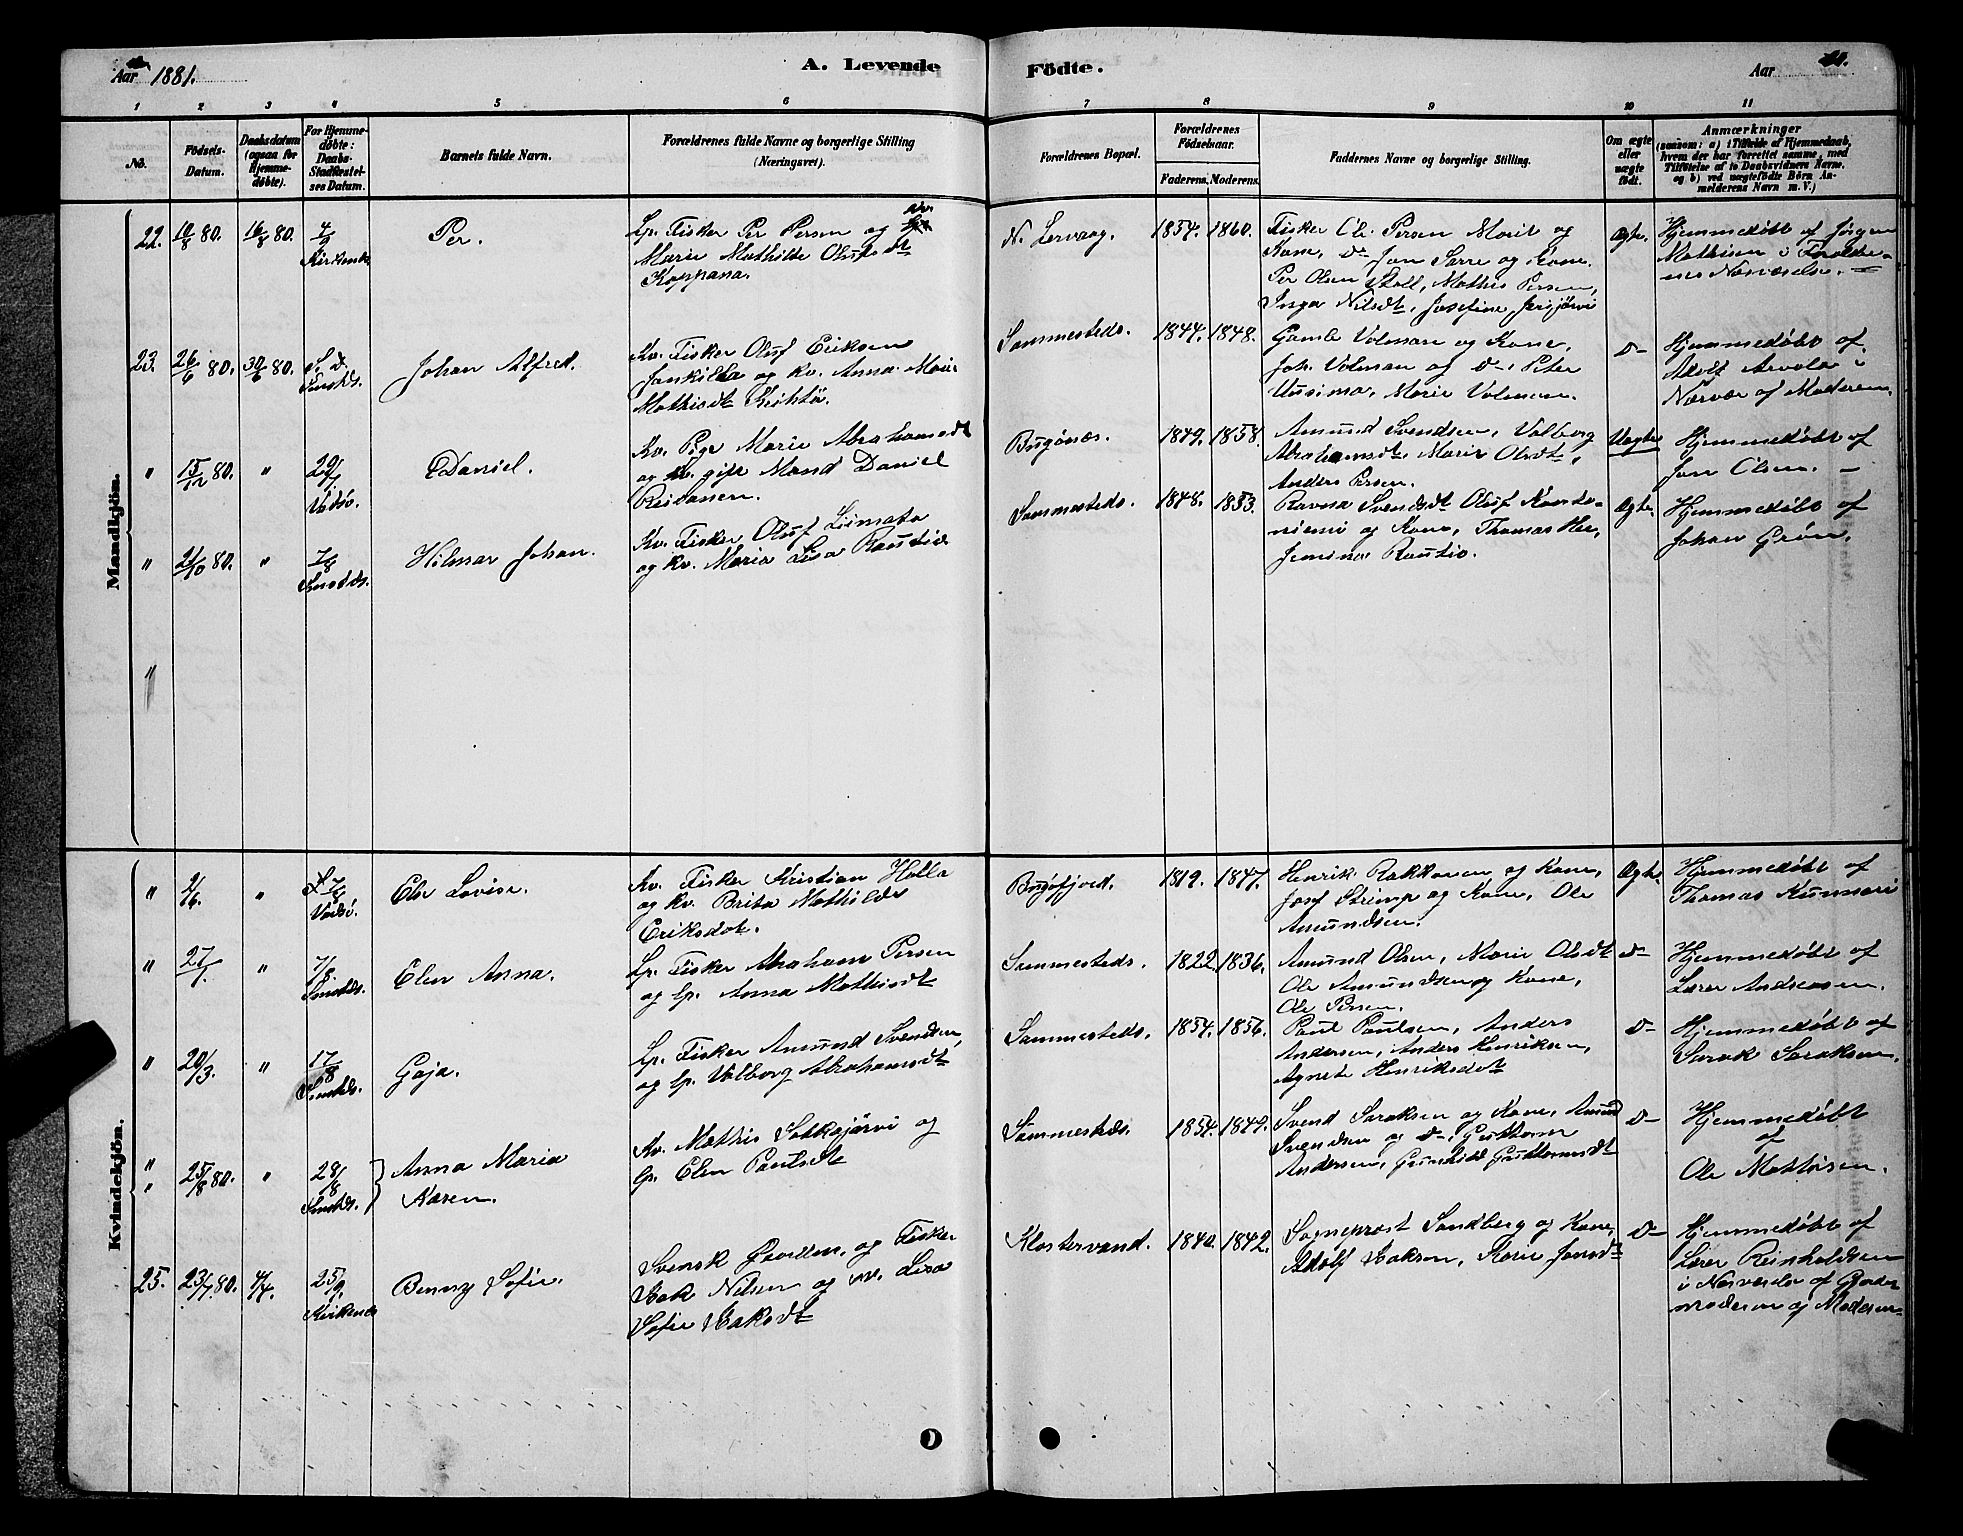 Aar 1881.
A. Levende
Födte.
Aar
1 2 3 4 5 6 7 8 9 10 11
No.
Födsels-
Datum.
Daabsdatum
(ogsaa for
Hjemme-
döbte).
For Hjemme-
döbte:
Daabs-
Stadfæstel-
ses Datum.
Barnets fulde Navn.
Forældrenes fulde Navne og borgerlige Stilling
(Næringsvei).
Forældrenes Bopæl.
Forældrenes
Födselsaar.
Faderens. Moderens.
Faddernes Navne og borgerlige Stilling.
Om ægte
eller
uægte
födt.
Anmærkninger
(saasom: a) i Tilfælde af Hjemmedaab,
hvem der har forrettet samme, med
Tilföielse af to Daabsvidners Navne,
og b) ved uægtefödte Börn An-
melderens Navn m. V.)
Mandkjön.
22. 10/8 80. 16/8 80. 4/9
Kirkenes
Per.
Lp. Fisker Per Persen og
Marie Mathilde Olufsdt
Koppana.
N. Lervaag.
1854. 1860.
Fisker Ole Persen Marit og
Kone, do Jon Sarre og Kone.
Per Olsen Stoll, Mathis Persen,
Inga Nilsdt, Josefine Jerijärvi
Ægte.
Hjemmedøbt af Jørgen
Mathisen i Forældre-
nes Nærværelse.
23. 26/6 80. 30/6 80. S. d.
Smstds.
Johan Alfred.
Kv. Fisker Oluf Eriksen
Jankilla og kv. Anna Marie
Mathisdt
Sammesteds.
1844. 1848.
Gamle Volman og Kone,
Joh. Volman og do Peter
Uusimaa, Marie Volman.
do
Hjemmedøbt af
Adolf Arvola i
Nærvær af Moderen
" 15/12 80. " 29/1
Vadsø.
Daniel.
Kv. Pige Marie Abrahamsdt
og kv. gift Mand Daniel
Reisanen.
Bugønæs.
1849. 1858.
Amund Svendsen, Valborg
Abrahamsdt, Marie Olsdt,
Anders Persen.
Uægte
Hjemmedøbt af
Jon Olsen.
" 21/10 80. " 7/8
Smstds.
Hilmar Johan.
Kv. Fisker Oluf Liimata
og kv. Maria Lisa Rautio
Sammesteds.
1848. 1853.
Ravna Svendsdt Oluf
niemi og Kone, Thomas
Rautio.
Ægte.
Hjemmedøbt af
Johan Grøn.
"
Kvindekjön.
" 2/6. "
Vadsø.
Else Lovise.
Kv. Fisker Kristian Holla
og kv. Brita Mathilde
Eriksdat.
Bugøfjord.
1819. 1847.
Henrik Rakkonen og Kone,
Josef Strimp og Kone, Ole
Amundsen.
Ægte.
Hjemmedøbt af
Thomas Kunnari
" 27/1 " 7/8
Smstds.
Elen Anna.
Lp. Fisker Abraham Persen
og lp. Anna Mathisdt
Sammesteds.
1822. 1836.
Amund Olsen, Marie Olsdt
Ole Amundsen og Kone,
Ole Persen.
do
Hjemmedøbt af
Lærer Andreasen.
" 20/3. " 17/8
Smstds.
Gaja.
Lp. Fisker Amund Svendsen,
og lp. Valborg Abrahamsdt
Sammesteds.
1854. 1856.
Paul Paulsen, Anders
Andersen, Anders Henriksen,
Agnete Henriksdt
do
Hjemmedøbt af
Sarak Saraksen.
"
" 25/8 80. " 28/8
Smstds.
Anna Maria
Karen.
Kv. Mathis Satkajärvi og
lp. Elen Paulsdt
Sammesteds.
1854. 1847.
Svend Saraksen og Kone, Amund
Svendsen og do, Guttorm
Andersen, Gunhild Guttormsdt
do
Hjemmedøbt
af
Ole Mathisen.
25. 23/7 80. 4/7. 25/9.
Kirkenes
Benny Sofie.
Svensk og Fisker
Isak Nilsen og nv. Lisa
Sofie Isaksdt
Klostervand.
1840. 1842.
Sogneprest Sandberg og Kone,
Adolf Isaksen, Karie Jonsdt
do
Hjemmedøbt af
Lærer Reinholdtsen
i Nærværelse af Gjorde-
moderen og Moderen